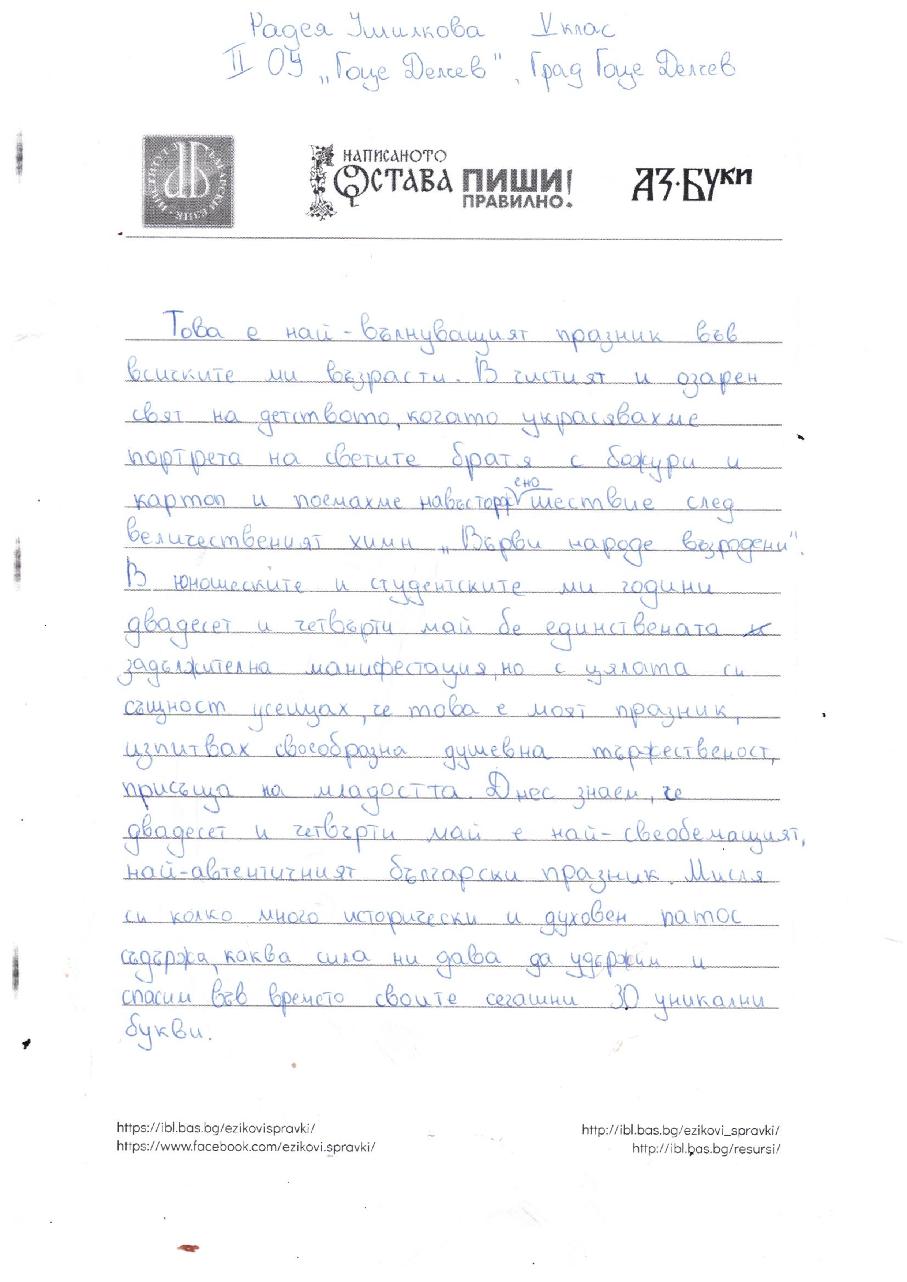 Радея Умилкова V клас
II ОУ „Гоце Делчев", Град Гоце Делчев
ИНСТИТУТ ЗА БЪЛГАРСКИ ЕЗИК
НАПИСАНОТО ОСТАВА ПИШИ ПРАВИЛНО!
АЗ·БУКИ
Това е най-вълнуващият празник във
всиските ми възрасти. В чистият и озарен
свят на детството, когато украсявахме
портрета на светите братя с божури и
картоп и поемахме навъсторжено шествие след
величественият химн „Върви народе възродени".
В юношеските и студентските ми години
двадесет и четвърти май бе единствената
задължителна манифестация, но с цялата си
същност усещах, че това е моят празник,
изпитвах своеобразна душевна тържественост,
присъща на младостта. Днес знаем, че
двадесет и четвърти май е най-свеобемащият,
най-автентичният български празник. Мисля
си колко много исторически и духовен патос
съдържа, каква сила ни дава да удържим и
спасим във времето своите сегашни 30 уникални
букви.
https://ibl.bas.bg/ezikovispravki/ http://ibl.bas.bg/ezikovi_spravki/
https://www.facebook.com/ezikovi.spravki/ http://ibl.bas.bg/resursi/